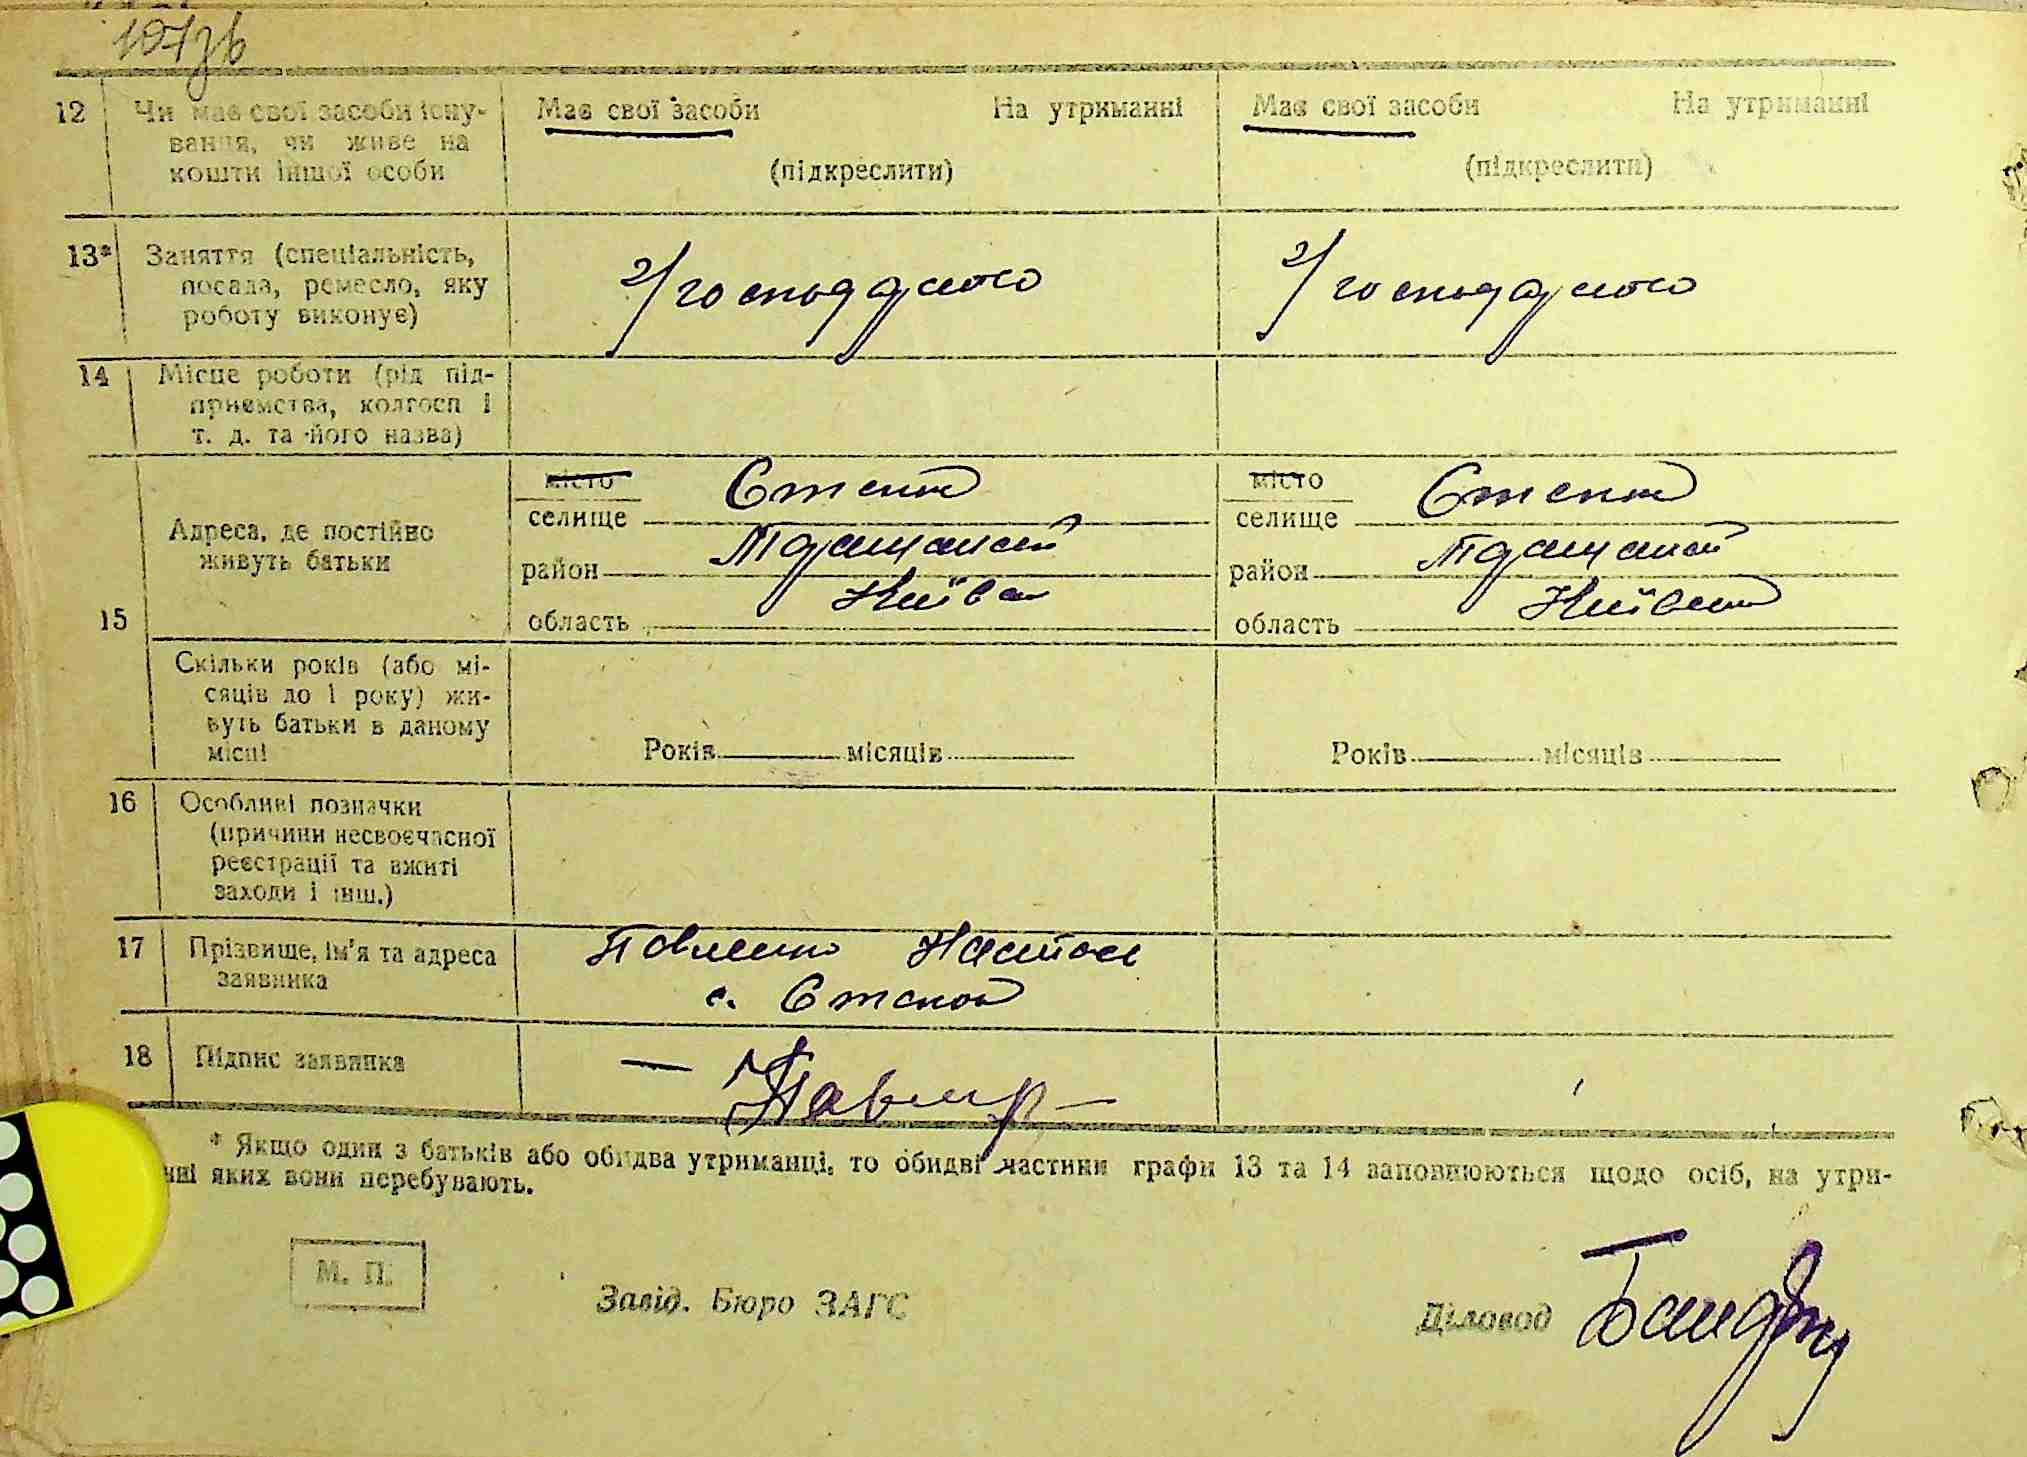 107зв
12 Чи має свої засоби існу-
вання, чи живе на
кошти іншої особи
Має свої засоби На утриманні
(підкреслити)
Має свої засоби На утриманні
(підкреслити)
13* Заняття (спеціальність,
посада, ремесло, яку
роботу виконує)
14 Місце роботи (рід під-
приємства, колгосп і
т. д. та його назва)
15 Адреса, де постійно
живуть батьки
місто
селище Степок
район
область Київськ
місто
селище Степок
район
область Київськ
Скільки років (або мі-
сяців до 1 року) жи-
вуть батьки в даному
місці
Років місяців
Років місяців
16 Особливі позначки
(причини несвоєчасної
реєстрації та вжиті
заходи і інш.)
17 Прізвище, ім'я та адреса
заявника
с. Степок
18 Підпис заявника
* Якщо один з батьків або обидва утриманці, то обидві частини графи 13 та 14 заповнюються щодо осіб, на утри-
нні яких вони перебувають.
М. П.
Завід. Бюро ЗАГС
Діловод